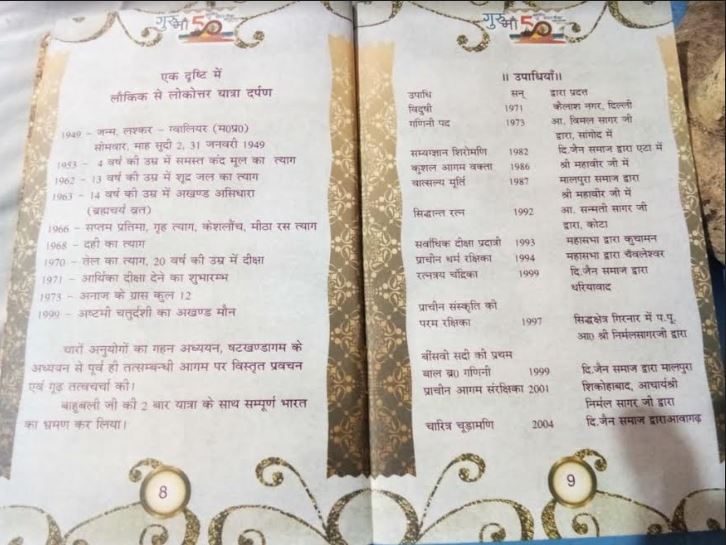 गुरु माँ 50
एक दृष्टि में
लौकिक से लोकोत्तर यात्रा दर्पण
1949 – जन्म, लश्कर – ग्वालियर (म0प्र0)
सोमवार, माह सुदी 2, 31 जनवरी 1949
1953 – 4 वर्ष की उम्र में समस्त कंद मूल का त्याग
1962 – 13 वर्ष की उम्र में शूद्र जल का त्याग
1963 – 14 वर्ष की उम्र में अखण्ड असिधारा
(ब्रह्मचर्य व्रत)
1966 – सप्तम प्रतिमा, गृह त्याग, केशलौंच, मीठा रस त्याग
1968 – दही का त्याग
1970 – तेल का त्याग, 20 वर्ष की उम्र में दीक्षा
1971 – आर्यिका दीक्षा देने का शुभारम्भ
1973 – अनाज के ग्रास कुल 12
1999 – अष्टमी चतुर्दशी का अखण्ड मौन
चारों अनुयोगों का गहन अध्ययन, षटखण्डागम के
अध्ययन से पूर्व ही तत्सम्बन्धी आगम पर विस्तृत प्रवचन
एवं गूढ़ तत्वचर्चा की।
बाहुबली जी की 2 बार यात्रा के साथ सम्पूर्ण भारत
का भ्रमण कर लिया।
8
गुरु माँ 50
॥ उपाधियाँ॥
उपाधि सन् द्वारा प्रदत्त
विदुषी 1971 कैलाश नगर, दिल्ली
गणिनी पद 1973 आ. विमल सागर जी
द्वारा, सांगोद में
सम्यग्ज्ञान शिरोमणि 1982 दि.जैन समाज द्वारा एटा में
कुशल आगम वक्ता 1986 श्री महावीर जी में
वात्सल्य मूर्ति 1987 मालपुरा समाज द्वारा
श्री महावीर जी में
सिद्धान्त रत्न 1992 आ. सन्मती सागर जी
द्वारा, कोटा
सर्वाधिक दीक्षा प्रदात्री 1993 महासभा द्वारा कुचामन
प्राचीन धर्म रक्षिका 1994 महासभा द्वारा चँवलेश्वर
रत्नत्रय चंद्रिका 1999 दि.जैन समाज द्वारा
धरियावाद
प्राचीन संस्कृति की
परम रक्षिका 1997 सिद्धक्षेत्र गिरनार में प.पू.
आ0 श्री निर्मलसागरजी द्वारा
बीसवीं सदी की प्रथम
बाल ब्र0 गणिनी 1999 दि.जैन समाज द्वारा मालपुरा
प्राचीन आगम संरक्षिका 2001 शिकोहाबाद, आचार्यश्री
निर्मल सागर जी द्वारा
चारित्र चूड़ामणि 2004 दि.जैन समाज द्वाराआवागढ़
9